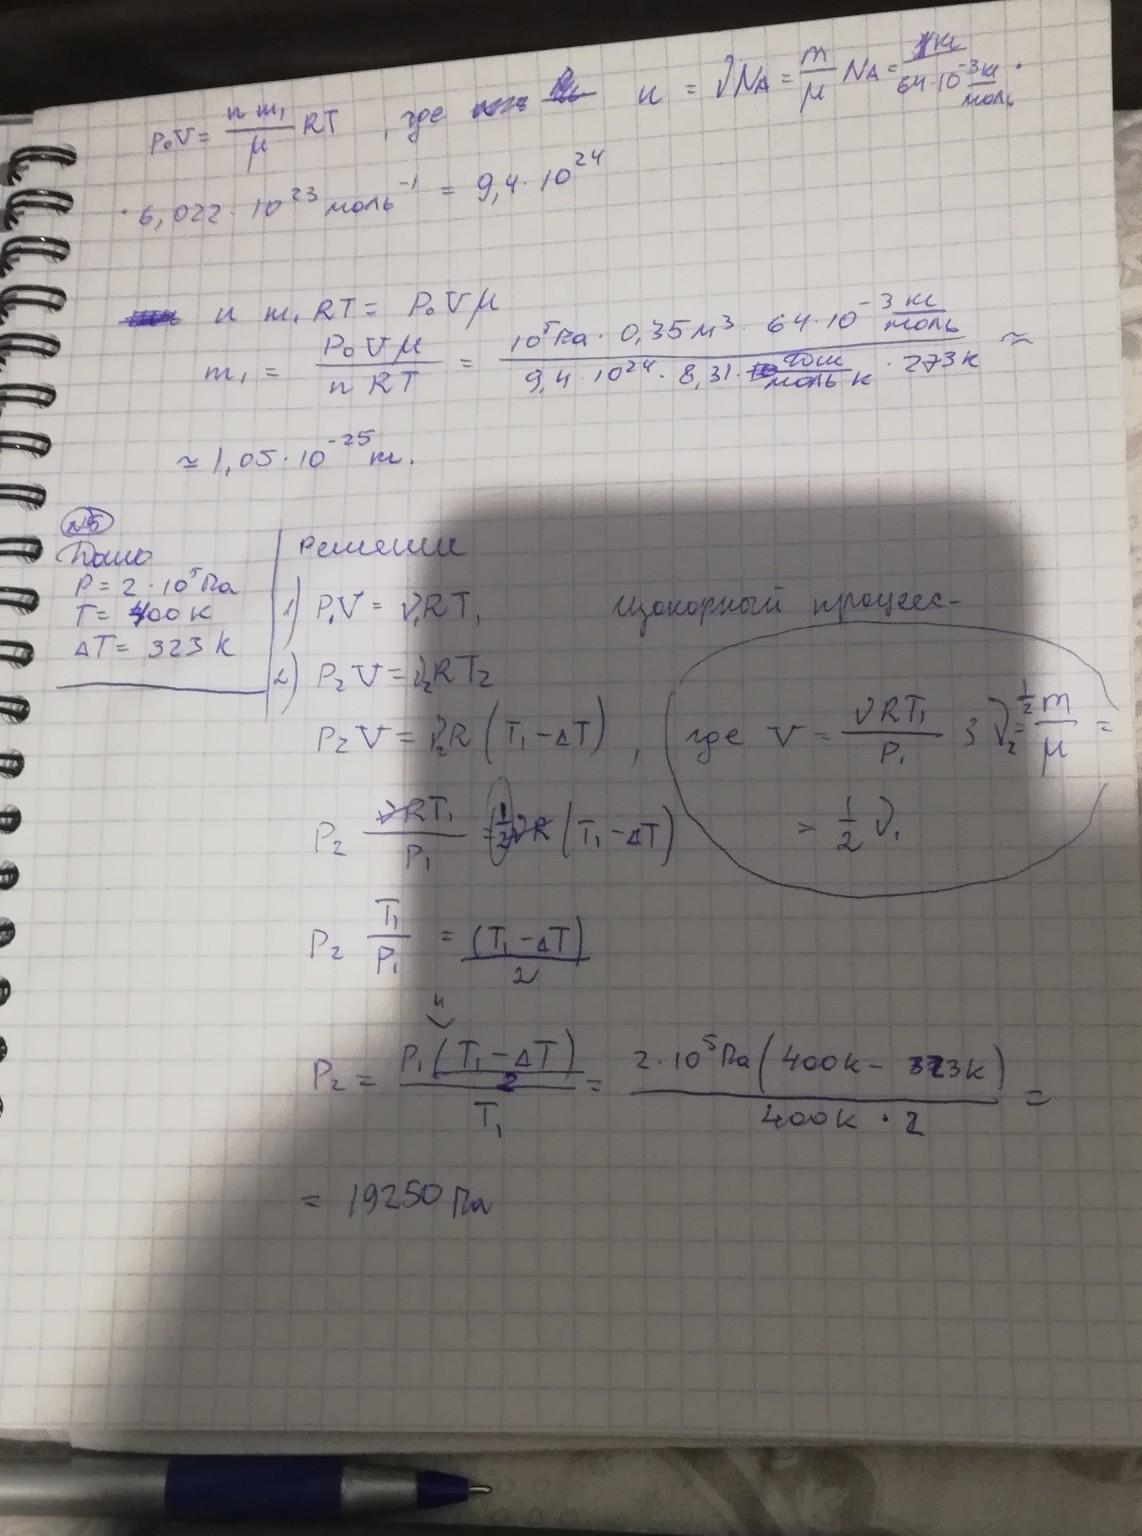 P₀V = n m₁/μ RT , где n = νN_A = m/μ N_A = 1кг/64·10⁻³ кг/моль ·
· 6,022 · 10²³ моль⁻¹ = 9,4 · 10²⁴
n m₁ RT = P₀Vμ
m₁ = P₀Vμ/nRT = 10⁵Па · 0,35м³ · 64·10⁻³ кг/моль / 9,4 · 10²⁴ · 8,31 · Дж/моль К · 273К ≈
≈ 1,05 · 10⁻²⁵ кг.
№5
Дано
P = 2 · 10⁵ Па
T = 400К
ΔT = 323К
Решение
1) P₁V = ν₁RT₁ Изохорный процесс-
2) P₂V = ν₂RT₂
P₂V = ν₂R(T₁ - ΔT), где V = νRT₁/P₁ ; ν₂ = 1/2 m/μ =
= 1/2 ν₁
P₂ νRT₁/P₁ = 1/2 νR (T₁ - ΔT)
P₂ T₁/P₁ = (T₁ - ΔT)/2
P₂ = P₁(T₁ - ΔT)/2 / T₁ = 2·10⁵Па(400К - 323К)/400К · 2 =
= 19250 Па